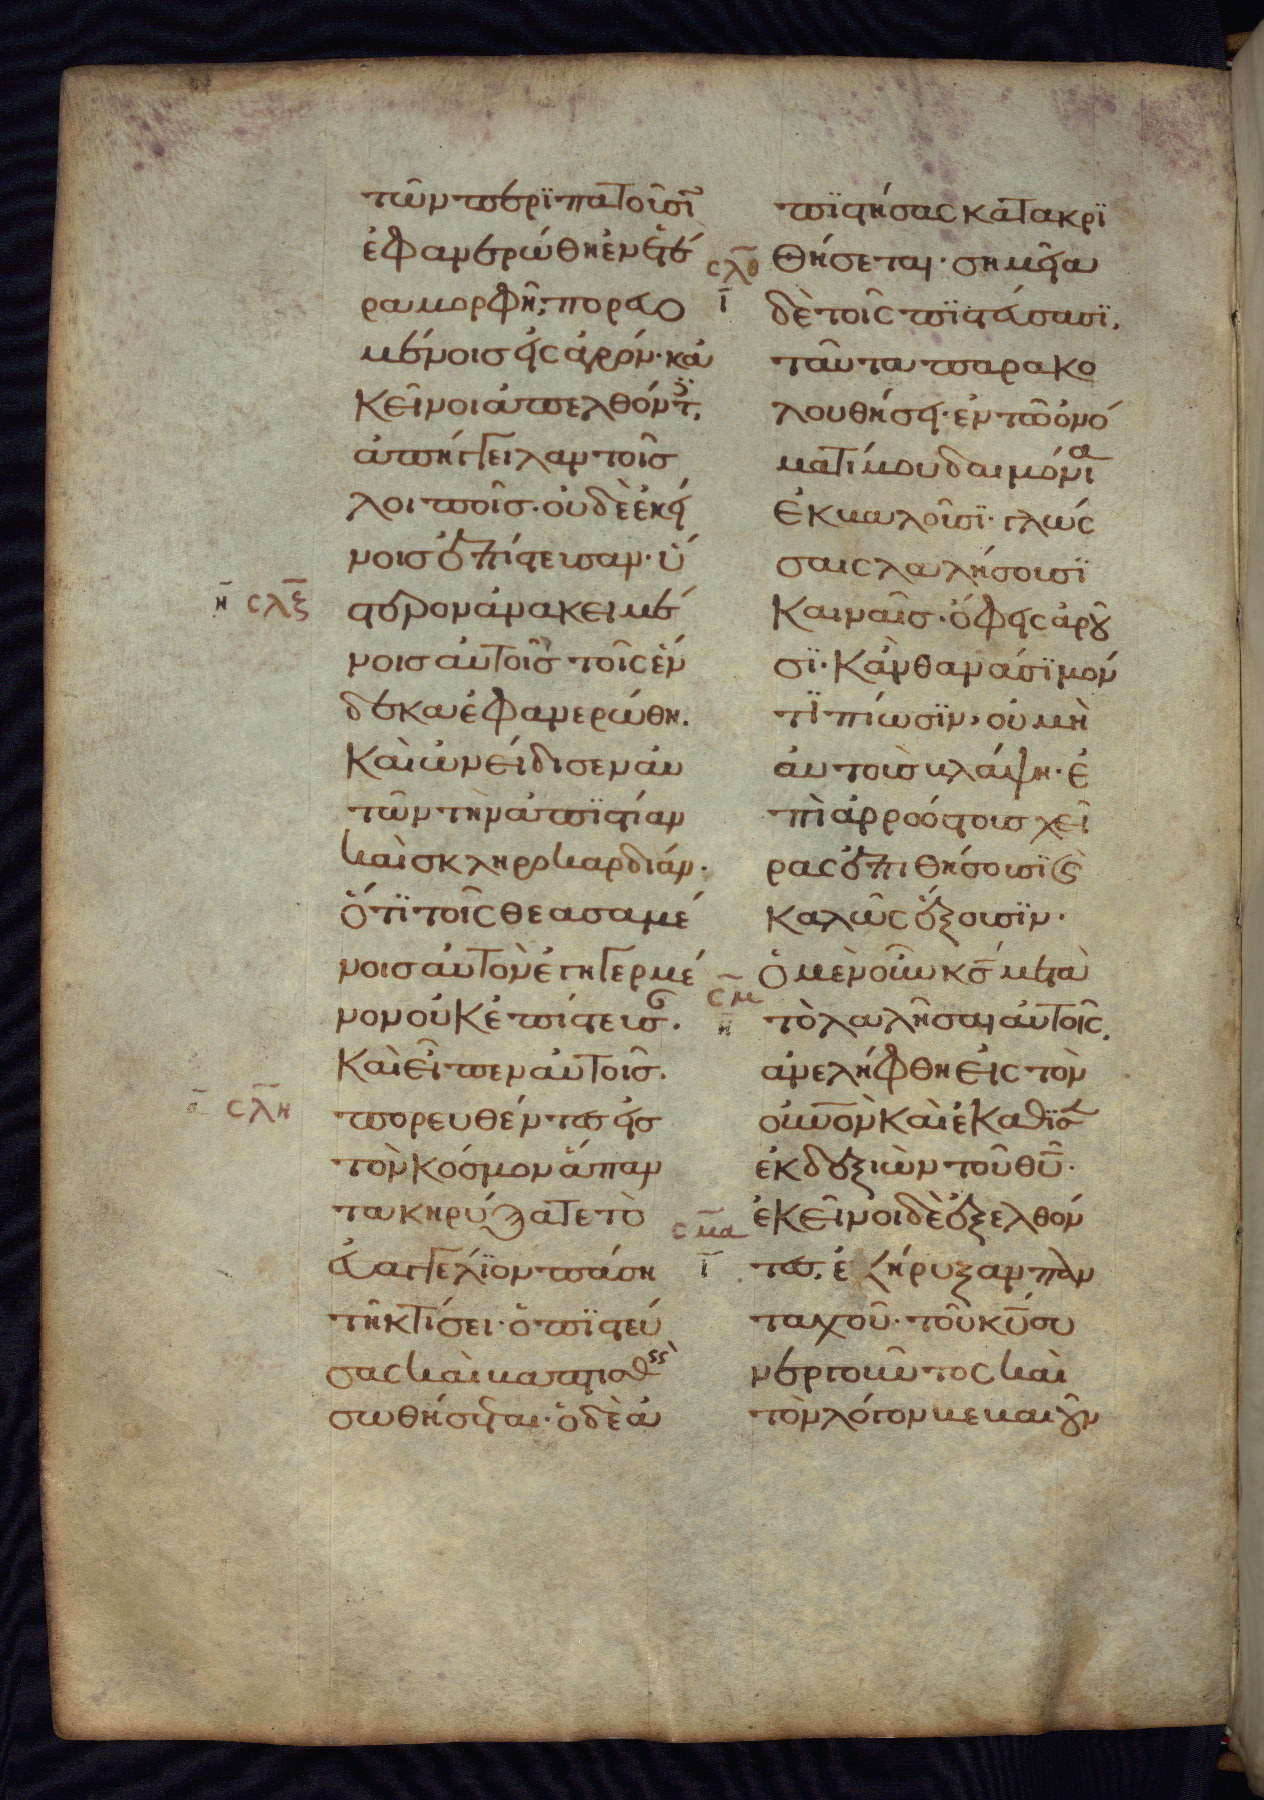 τῶν περϊπατοῦσϊ
ἐφανερώθη ἐν ἑτέ
ρα μορφῆ, πορευο
μένοις εἰς ἀγρόν· κἀ
κεῖνοι ἀπελθόντ,
ἀπήγγειλαν τοῖσ
λοιποῖσ· οὐδὲ ἐκεί
νοισ ἐπίστευσαν· ὕ
η σλζ
στερον ἀνακειμέ
νοισ αὐτοῖσ τοῖς ἕν
δεκα ἐφανερώθη.
Καὶ ὠνείδισεν αὐ
τῶν τὴν ἀπϊστίαν
καὶ σκληροκαρδίαν·
ὅτϊ τοῖς θεασαμέ
νοισ αὐτὸν ἐγηγερμέ
νον οὐκ ἐπίστευσ.
Καὶ εἶπεν αὐτοῖσ.
σλη
πορευθέντεσ εἰσ
τὸν κόσμον ἅπαν
τα κηρύξατε τὸ
εὐαγγέλϊον πάση
τῆ κτίσει· ὁ πϊστεύ
σας καὶ βαπτισθεὶσ
σωθήσεται· ὁ δὲ ἀ
πϊστήσας κατακρϊ
σλθ
ϊ
θήσεται· σημεῖα
δὲ τοῖς πϊστεύσασϊ,
ταῦτα παρακο
λουθήσει· ἐν τῶ ὀνό
ματί μου δαιμόνϊα
ἐκβαλοῦσϊ· γλώσ
σαις λαλήσουσϊ
καιναῖσ· ὄφεις ἀροῦ
σϊ· κἂν θανάσϊμόν
τϊ πίωσϊν, οὐ μὴ
αὐτοὺσ βλάψη· ἐ
πὶ ἀρρώστουσ χεῖ
ρας ἐπιθήσουσϊ ϗ
καλῶς ἕξουσϊν·
σμ
η
ὁ μὲν οὖν κσ μετὰ
τὸ λαλῆσαι αὐτοῖς,
ἀνελήφθη εἰς τὸν
οὐνον καὶ ἐκάθϊσεν
ἐκ δεξιῶν τοῦ θυ·
σμα
ϊ
ἐκεῖνοι δὲ ἐξελθόν
τεσ, ἐκήρυξαν παν
ταχοῦ· τοῦ κυ συ
νεργοῦντος καὶ
τὸν λόγον βεβαιοῦν